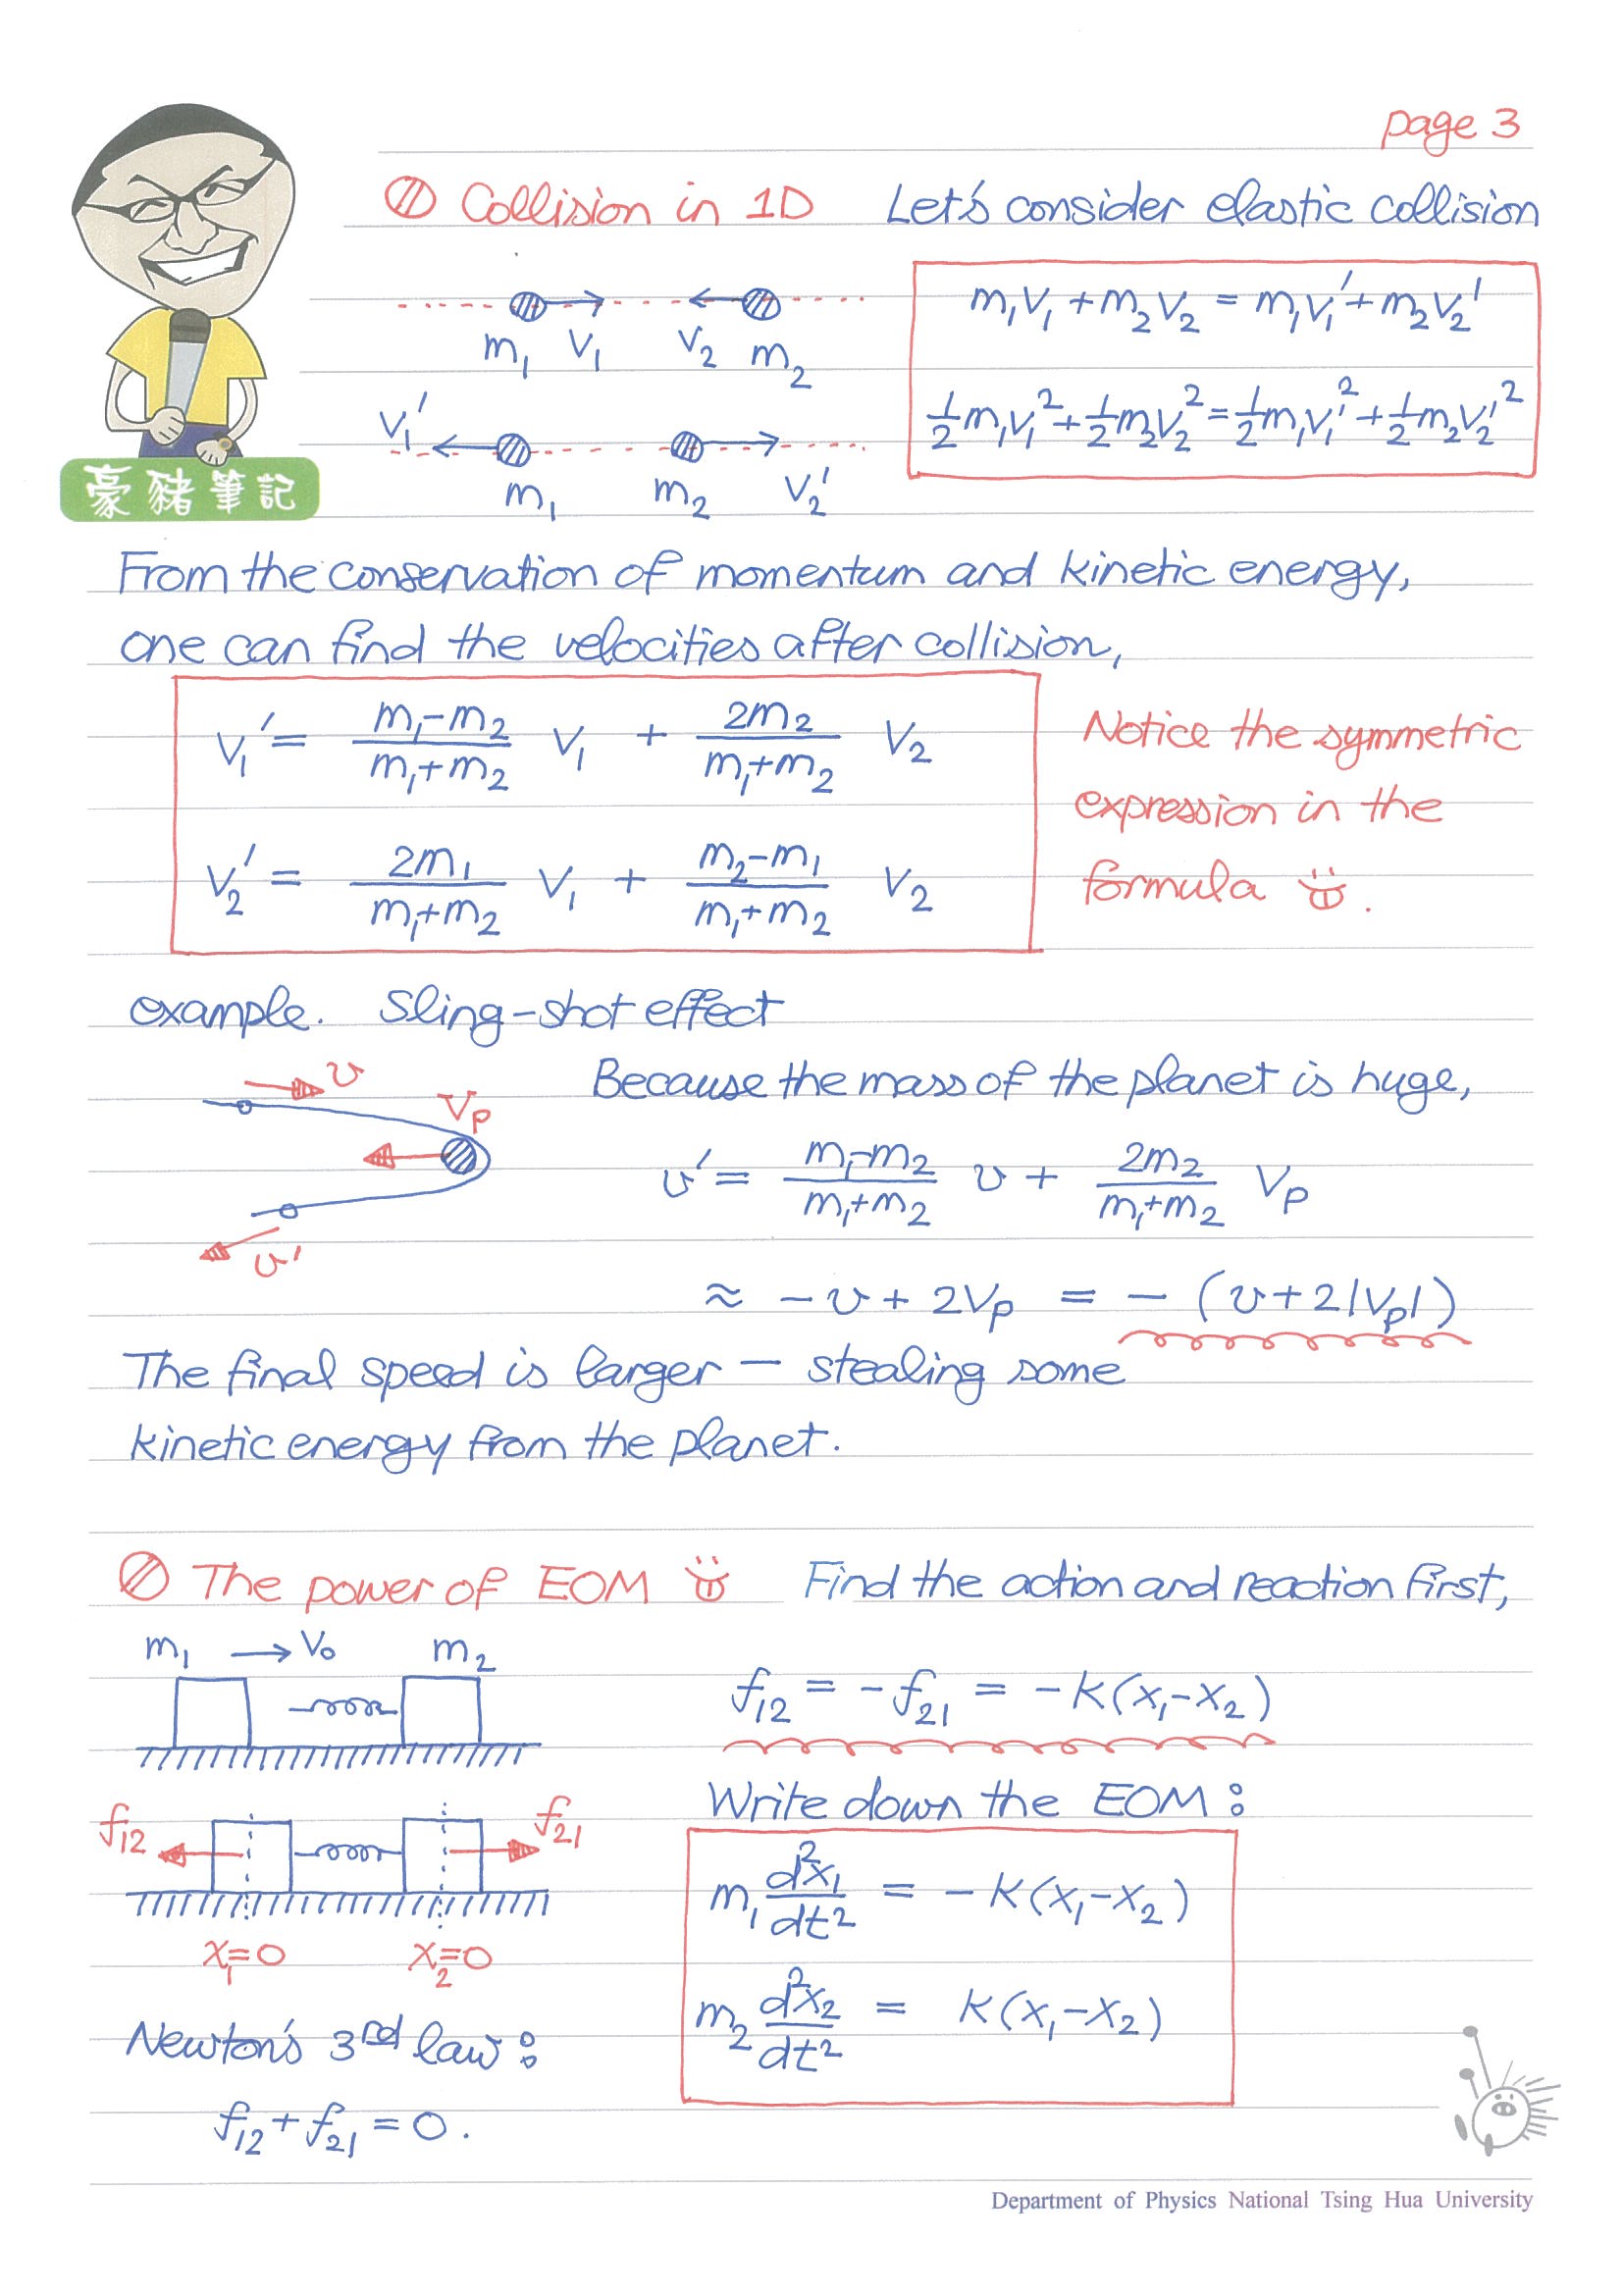 page 3
Collision in 1D Let's consider elastic collision
m₁ v₁ v₂ m₂
m₁v₁ + m₂v₂ = m₁v₁' + m₂v₂'
½m₁v₁² + ½m₂v₂² = ½m₁v₁'² + ½m₂v₂'²
v₁' m₁ m₂ v₂'
豪豬筆記
From the conservation of momentum and kinetic energy,
one can find the velocities after collision,
v₁' = (m₁-m₂)/(m₁+m₂) v₁ + 2m₂/(m₁+m₂) v₂
v₂' = 2m₁/(m₁+m₂) v₁ + (m₂-m₁)/(m₁+m₂) v₂
Notice the symmetric
expression in the
formula
example. Sling-shot effect
v Vp v'
Because the mass of the planet is huge,
v' = (m₁-m₂)/(m₁+m₂) v + 2m₂/(m₁+m₂) Vp
≈ -v + 2Vp = -(v+2|Vp|)
The final speed is larger — stealing some
kinetic energy from the planet.
The power of EOM Find the action and reaction first,
m₁ → v₀ m₂
f₁₂ = -f₂₁ = -k(x₁-x₂)
f₁₂ f₂₁
x₁=0 x₂=0
Write down the EOM:
m₁ d²x₁/dt² = -k(x₁-x₂)
m₂ d²x₂/dt² = k(x₁-x₂)
Newton's 3rd law:
f₁₂+f₂₁ = 0.
Department of Physics National Tsing Hua University